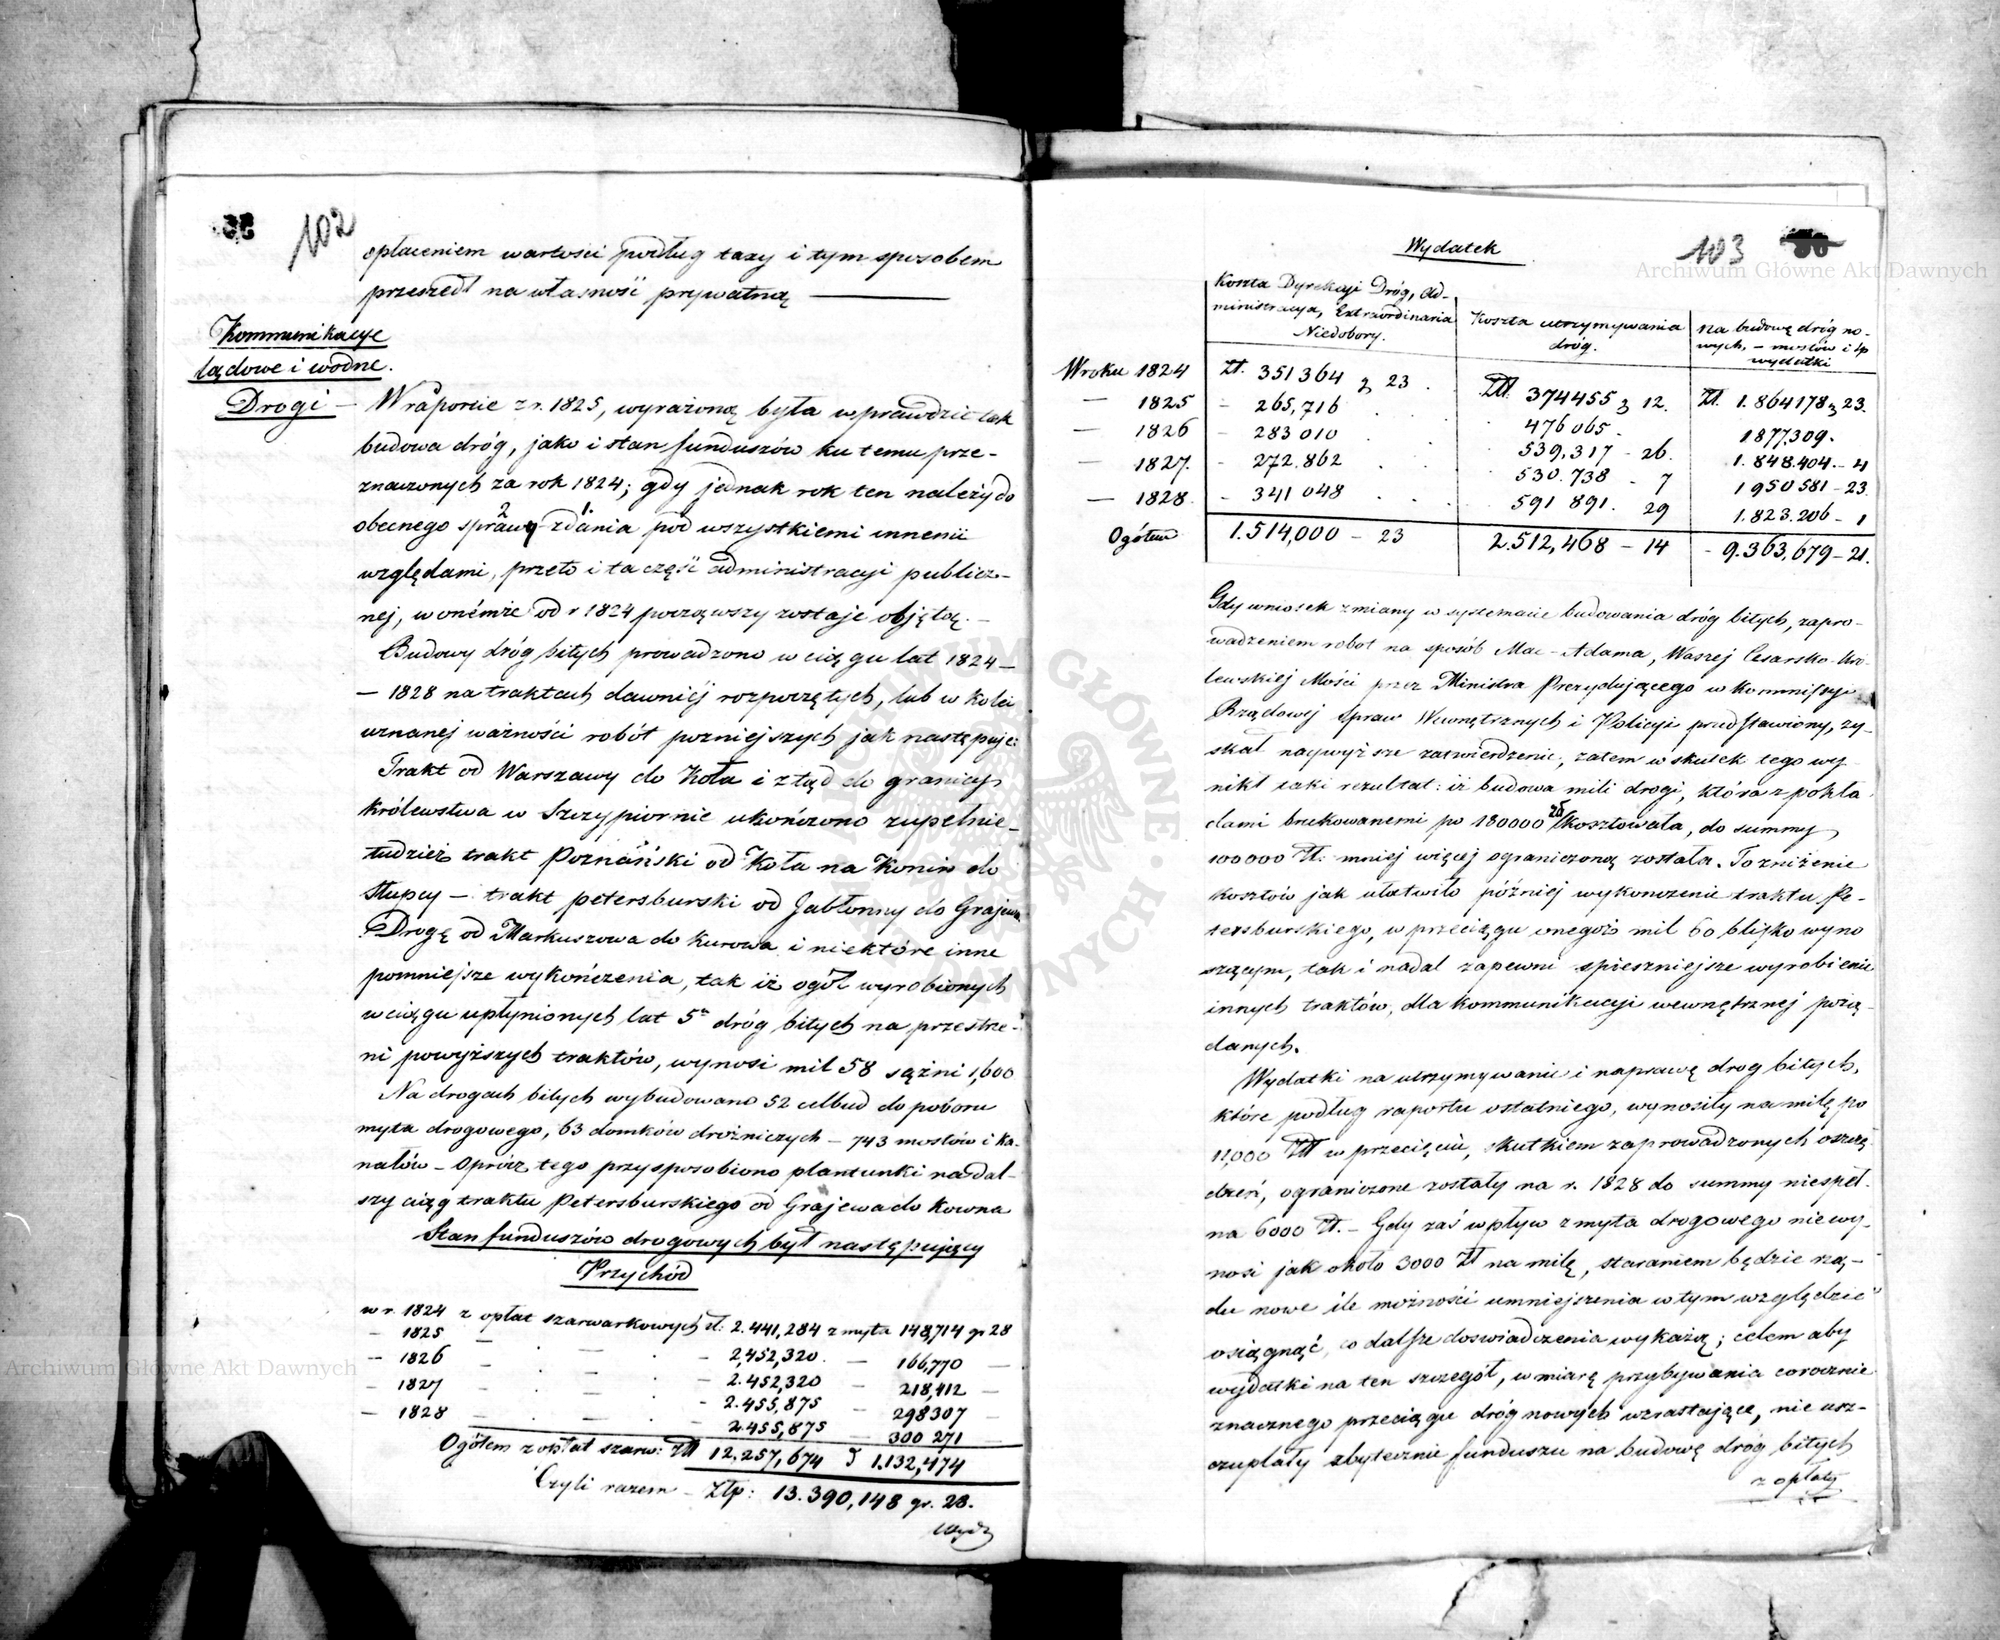 102
opłaceniem wartości podług taxy i tym sposobem
przeszedł na własność prywatną
Kommunikacje
lądowe i wodne.
Drogi —
W raporcie z r. 1825, wyrażoną była wprawdzie tak
budowa dróg, jako i stan funduszów ku temu prze-
znaczonych za rok 1824; gdy jednak rok ten należy do
obecnego sprawozdania pod wszystkiemi innemi
względami, przeto i ta część administracyi publicz-
nej, w onémże od r 1824 począwszy zostaje objętą. —
Budowy dróg bitych prowadzono w ciągu lat 1824 —
— 1828 na traktach dawniéj rozpoczętych, lub w kolei
uznanej ważności robót pozniejszych jak następuje:
Trakt od Warszawy do Koła i ztąd do granicy
Królewstwa w Szczypiornie ukończono zupełnie —
tudzież trakt Poznański od Koła na Konin do
Słupcy — trakt petersburski od Jabłonny do Grajewa
Drogę od Markuszowa do Kurowa i niektóre inne
pomniejsze wykończenia, tak iż ogół wyrobionych
w ciągu upłynionych lat 5 dróg bitych na przestrze-
ni powyższych traktów, wynosi mil 58 sążni 1,600
Na drogach bitych wybudowano 52 celbud do poboru
myta drogowego, 63 domków dróżniczych — 743 mostów i ka-
nałów — Oprócz tego przysposobiono plantunki na dal-
szy ciąg traktu Petersburskiego od Grajewa do Kowna
Stan funduszów drogowych był następujący
Przychód
w r. 1824 z opłat szarwarkowych zł: 2.441,284 z myta 148,714 gr 28
— 1825 — — 2,452,320. — 166,770 —
— 1826 — — 2.452,320 — 218,412 —
— 1827 — — 2.455,875 — 298307 —
— 1828 — — 2.455,875 — 300 271 —
Ogółem z opłat szarw: Zł 12.257,674 1.132,474
Czyli razem — Złp: 13.390,148 gr. 28.
Wyd
103
Wydatek
Koszta Dyrekcji Dróg, Ad-
ministracya, Extraordinaria
Niedobory.
Koszta utrzymywania
dróg.
na budowę dróg no-
wych, — mostów i tp
wydatki
W roku 1824 Zł. 351 364 g 23 . Zł 374455 g 12. Zł. 1.864178 g 23.
— 1825 - 265,716 . . 476 065 . 1877.309.
— 1826 - 283 010 . . 539,317 - 26. 1.848.404. - 4
— 1827. - 272.862 . . 530.738 - 7 1950581 - 23
— 1828. - 341 048 . . 591 891. 29 1.823.206 - 1
Ogółem 1.514,000 - 23 2.512,468 - 14 - 9.363,679 - 21.
Gdy wniosek zmiany w systemacie budowania dróg bitych, zapro-
wadzeniem robot na sposób Mac-Adama, Waszej Cesarsko-Kró-
lewskiej Mości przez Ministra Prezydującego w Kommissyi
Rządowej Spraw Wewnętrznych i Policyi przedstawiony, zy-
skał naywyższe zatwierdzenie; zatem w skutek tego wy-
nikł taki rezultat: iż budowa mili drogi, która z pokła
dami brukowanemi po 180000 zł kosztowała, do summy
100000 Zł: mniej więcej ograniczoną została. To zniżenie
kosztów jak ułatwiło później wykonczenie traktu Pe-
tersburskiego, w przeciągu onegoż mil 60 blisko wyno
szącym, tak i nadal zapewni spieszniejsze wyrobienie
innych traktów, dla kommunikacyi wewnętrznej pożą-
danych.
Wydatki na utrzymywanie i naprawę drog bitych,
które podług raportu ostatniego, wynosiły na milę po
11,000 Zł w przecięciu, skutkiem zaprowadzonych oszczę
dzeń, ograniczone zostały na r. 1828 do summy niespeł-
na 6000 Zł. — Gdy zaś wpływ z myta drogowego nie wy-
nosi jak około 3000 Zł na milę, staraniem będzie rzą-
du nowe ile możności umniejszenia w tym względzie
osiągnąć, co dalsze doswiadczenia wykażą; celem aby
wydatki na ten szczegół, w miarę przybywania corocznie
znacznego przeciągu dróg nowych wzrastające, nie usz-
czuplały zbytecznie funduszu na budowę dróg bitych
z opłaty
Archiwum Główne Akt Dawnych
Archiwum Główne Akt Dawnych